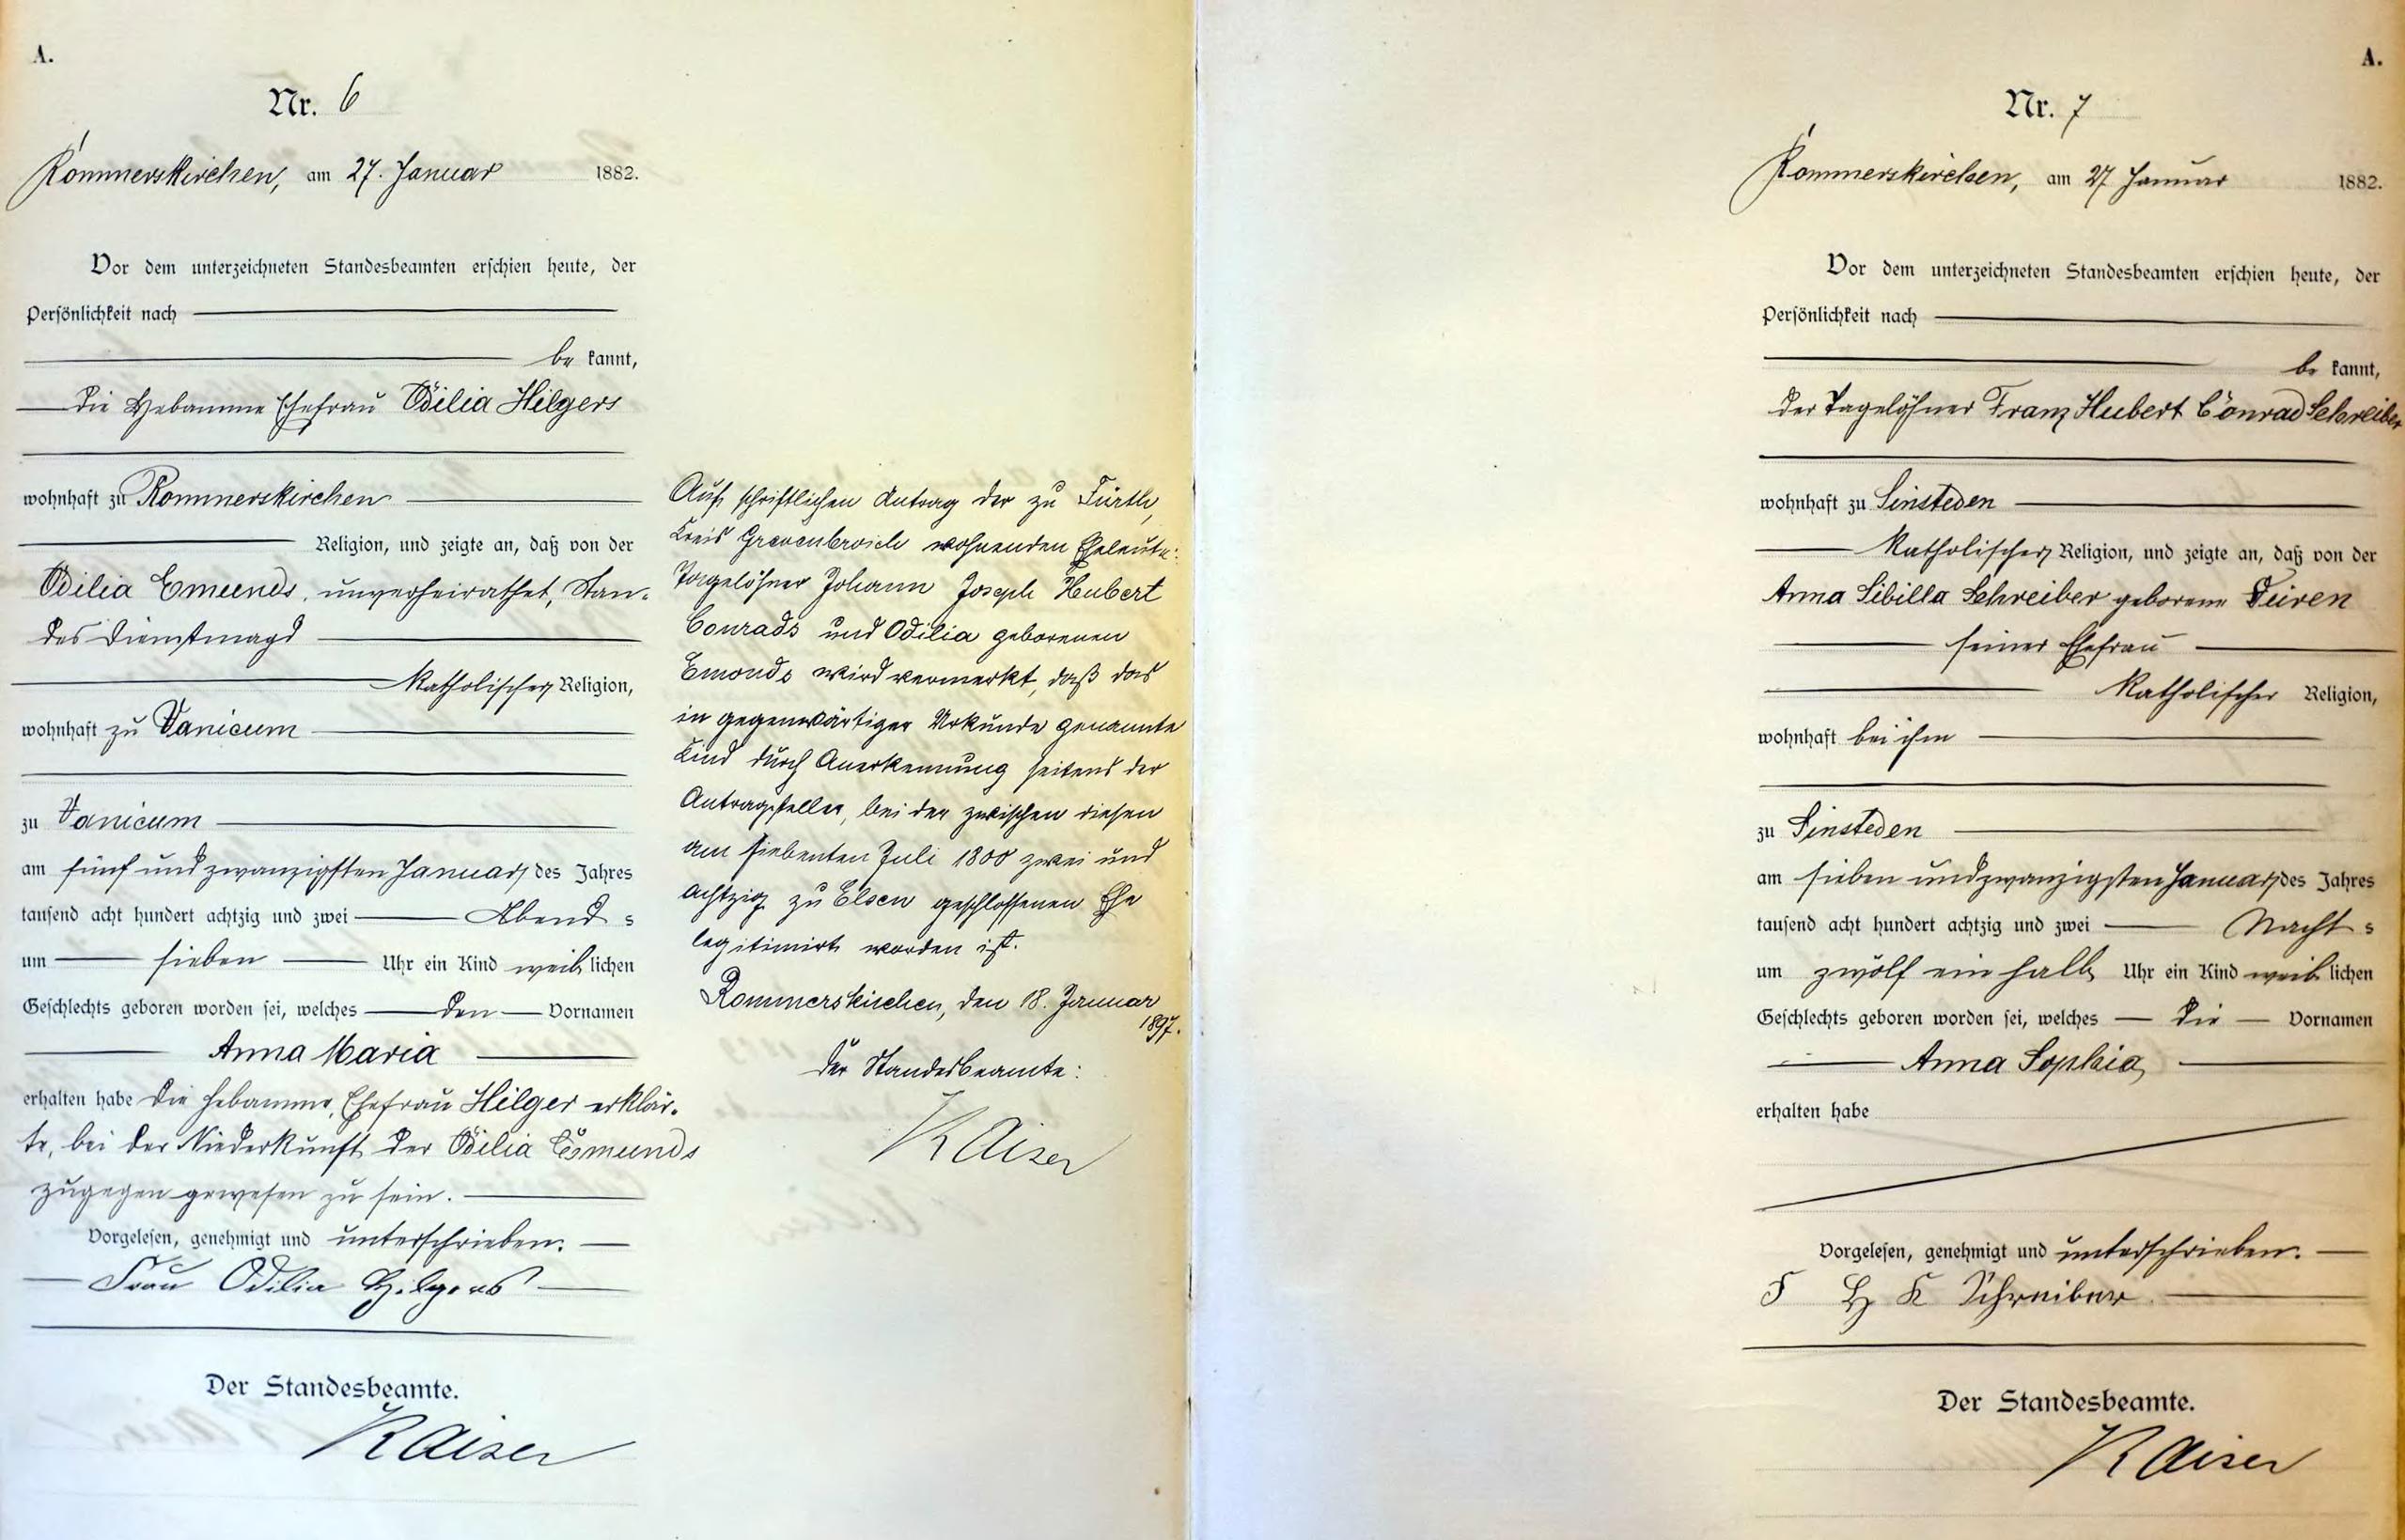 A.
Nr. 6
Rommerskirchen, am 27. Januar 1882.
Vor dem unterzeichneten Standesbeamten erschien heute, der
Persönlichkeit nach
be kannt,
die Hebamme Ehefrau Odilia Hilgers
wohnhaft zu Rommerskirchen
Religion, und zeigte an, daß von der
Odilia Emunds, unverheirathet, Stan-
des Dienstmagd
katholischer Religion,
wohnhaft zu Vanicum
zu Vanicum
am fünf und zwanzigsten Januar des Jahres
tausend acht hundert achtzig und zwei Abend s
um sieben Uhr ein Kind weib lichen
Geschlechts geboren worden sei, welches den Vornamen
Anna Maria
erhalten habe die Hebamme, Ehefrau Hilger erklär-
te, bei der Niederkunft der Odilia Esmunds
zugegen gewesen zu sein.
Vorgelesen, genehmigt und unterschrieben.
Frau Odilia Hilgers
Der Standesbeamte.
Kaiser
Auf schriftlichen Antrag der zu Fürth,
Kreis Grevenbroich wohnenden Eheleute:
Tagelöhner Johann Joseph Hubert
Conrads und Odilia geborenen
Emonds wird vermerkt, daß das
in gegenwärtiger Urkunde genannte
Kind durch Anerkennung seitens der
Antragsteller, bei der zwischen diesen
am siebenten Juli 1800 zwei und
achtzig zu Elsen geschlossenen Ehe
legitimirt worden ist.
Rommerskirchen, den 18. Januar
1897.
Der Standesbeamte:
Kaiser
A.
Nr. 7
Rommerskirchen, am 27 Januar 1882.
Vor dem unterzeichneten Standesbeamten erschien heute, der
Persönlichkeit nach
be kannt,
der Tagelöhner Franz Hubert Conrad Schreiber
wohnhaft zu Sinsteden
katholischer Religion, und zeigte an, daß von der
Anna Sibilla Schreiber geborene Feiren
seiner Ehefrau
katholischer Religion,
wohnhaft bei ihm
zu Sinsteden
am sieben und zwanzigsten Januar des Jahres
tausend acht hundert achtzig und zwei Nacht s
um zwölf ein halb Uhr ein Kind weib lichen
Geschlechts geboren worden sei, welches die Vornamen
Anna Sophia
erhalten habe
Vorgelesen, genehmigt und unterschrieben.
F H K Schreiber
Der Standesbeamte.
Kaiser